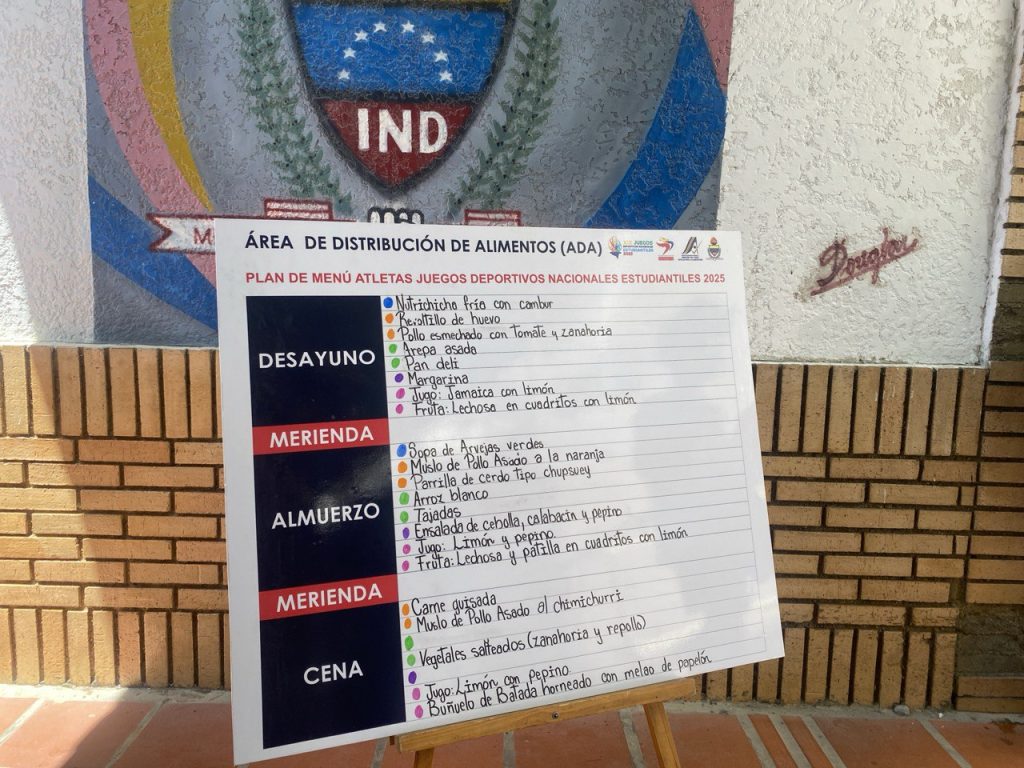 IND
M
ÁREA DE DISTRIBUCIÓN DE ALIMENTOS (ADA)
JUEGOS
ESTUDIANTILES
PLAN DE MENÚ ATLETAS JUEGOS DEPORTIVOS NACIONALES ESTUDIANTILES 2025
Douglas
DESAYUNO
Nutrichicha fría con cambur
Revoltillo de huevo
Pollo esmechado con Tomate y zanahoria
Arepa asada
Pan deli
Margarina
Jugo: Jamaica con limón
Fruta: Lechosa en cuadritos con limón
MERIENDA
ALMUERZO
Sopa de Arvejas verdes
Muslo de Pollo Asado a la naranja
Parrilla de cerdo tipo chupsuey
Arroz blanco
Tajadas
Ensalada de cebolla, calabacín y pepino
Jugo: Limón y pepino
Fruta: Lechosa y patilla en cuadritos con limón
MERIENDA
CENA
Carne guisada
Muslo de Pollo Asado al chimichurri
Vegetales salteados (zanahoria y repollo)
Jugo: Limón con pepino
Buñuelo de Batada horneado con melao de papelón